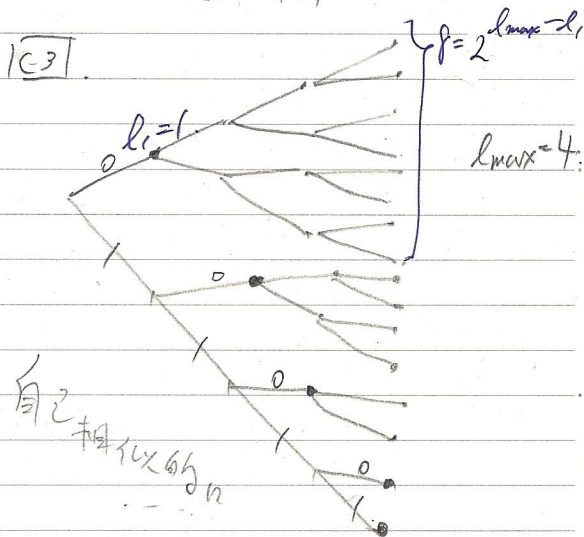 C-3
8 = 2^{l_{max} - l_1}
l_1 = 1
l_{max} = 4
0
1
0
1
0
1
0
1
自己
相似的に